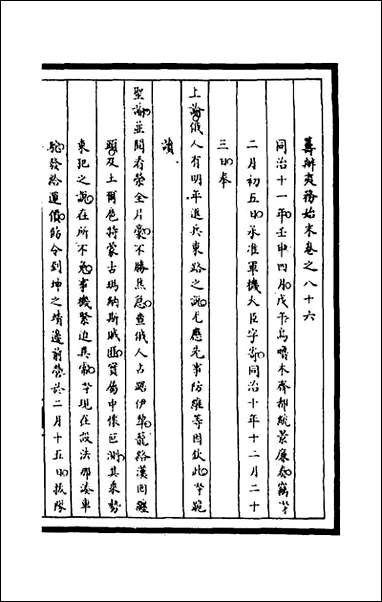 籌辦夷務始末卷之八十六
同治十一年壬申四月戊午烏嚕木齊都統景廉奏竊奴才
二月初五日承准軍機大臣字寄同治十年十二月二十
三日奉
上諭俄人有明年進兵東路之說尤應先事防維等因欽此奴才跪
讀
聖諭並閱看榮全片奏不勝焦急查俄人占踞伊犂籠路漢回纏
頭及土爾扈特蒙古瑪納斯賊匪賀備中懷叵測其乘勢
東犯之說在所不免事機緊迫異常奴才現在設法那湊車
駝發給運價飭令到坤之靖邊前營於二月十五日拔隊